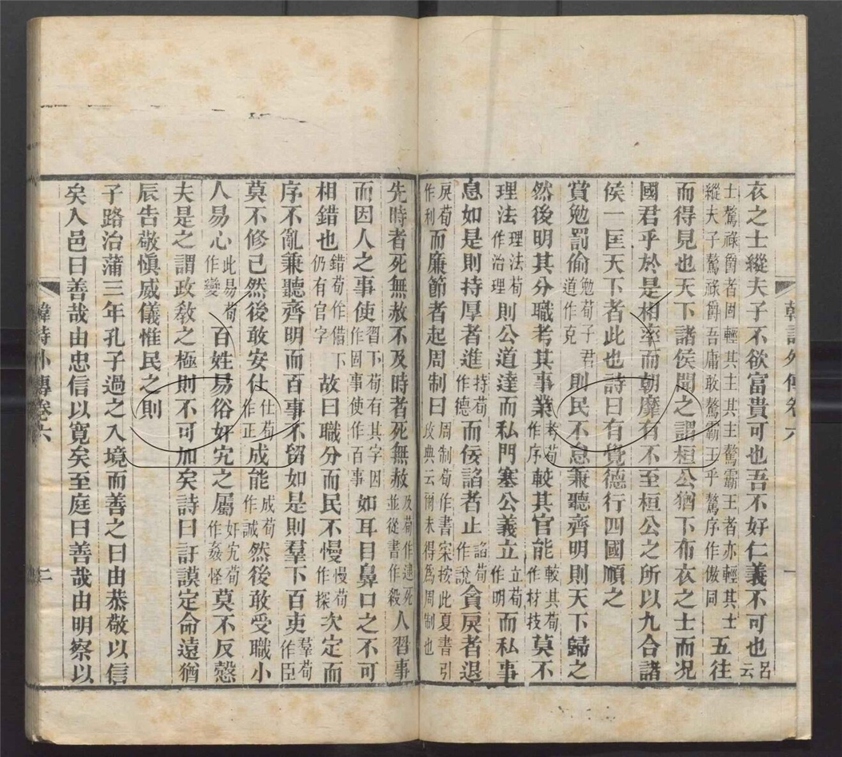 衣之士縱夫子不欲富貴可也吾不好仁義不可也呂云
士驁祿爵者固輕其主其主驁霸王者亦輕其士
縱夫子驁祿爵吾庸敢驁霸王乎驁序作傲同
五往
而得見也天下諸侯聞之謂桓公猶下布衣之士而況
國君乎於是相率而朝靡有不至桓公之所以九合諸
侯一匡天下者此也詩曰有覺德行四國順之
賞勉罰偷勉荀子君道作克則民不怠兼聽齊明則天下歸之
然後明其分職考其事業考荀作序較其官能較其荀作材技莫不
理法理法荀作治理則公道達而私門塞公義立立荀作明而私事
息如是則持厚者進持荀作德而佞諂者止諂荀作說貪戾者退
戾荀作利而廉節者起周制曰周制荀作書宋按此夏書引政典云爾未得爲周制也
先時者死無赦不及時者死無赦及荀作逮死並從書作殺人習事
而因人之事使習下荀有其字因作固事使作百事如耳目鼻口之不可
相錯也錯荀作借下仍有官字故曰職分而民不慢慢荀作探次定而
序不亂兼聽齊明而百事不留如是則羣下百吏羣荀作臣
莫不修己然後敢安仕仕荀作正成能成荀作誠然後敢受職小
人易心此易荀作變百姓易俗奸宄之屬奸宄荀作姦怪莫不反愨
夫是之謂政敎之極則不可加矣詩曰訏謨定命遠猶
辰告敬愼威儀惟民之則
子路治蒲三年孔子過之入境而善之曰由恭敬以信
矣入邑曰善哉由忠信以寬矣至庭曰善哉由明察以
韓詩外傳卷六
一
韓詩外傳卷六
二